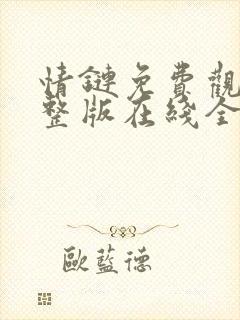 情鏈免費觀
整版在綫全
歐藍德